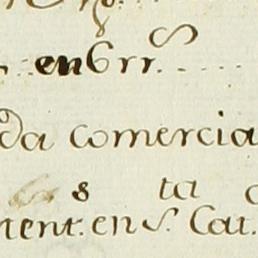 en 6 rr.^s
da comercia
8 ta
nent. en S. Cat.